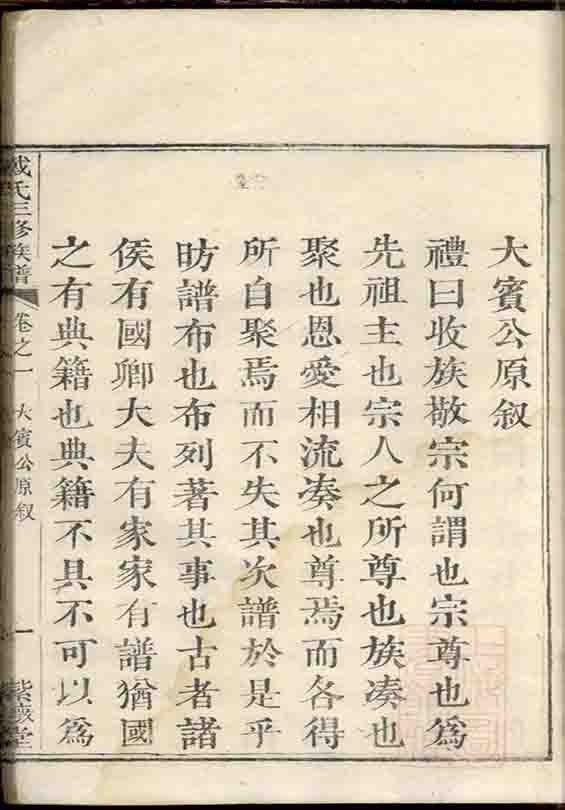 大賓公原叙
禮曰收族敬宗何謂也宗尊也爲
先祖主也宗人之所尊也族凑也
聚也恩愛相流凑也尊焉而各得
所自聚焉而不失其次譜於是乎
昉譜布也布列著其事也古者諸
侯有國卿大夫有家家有譜猶國
之有典籍也典籍不具不可以爲
戴氏三修族譜
卷之一
大賓公原叙
一
紫薇堂